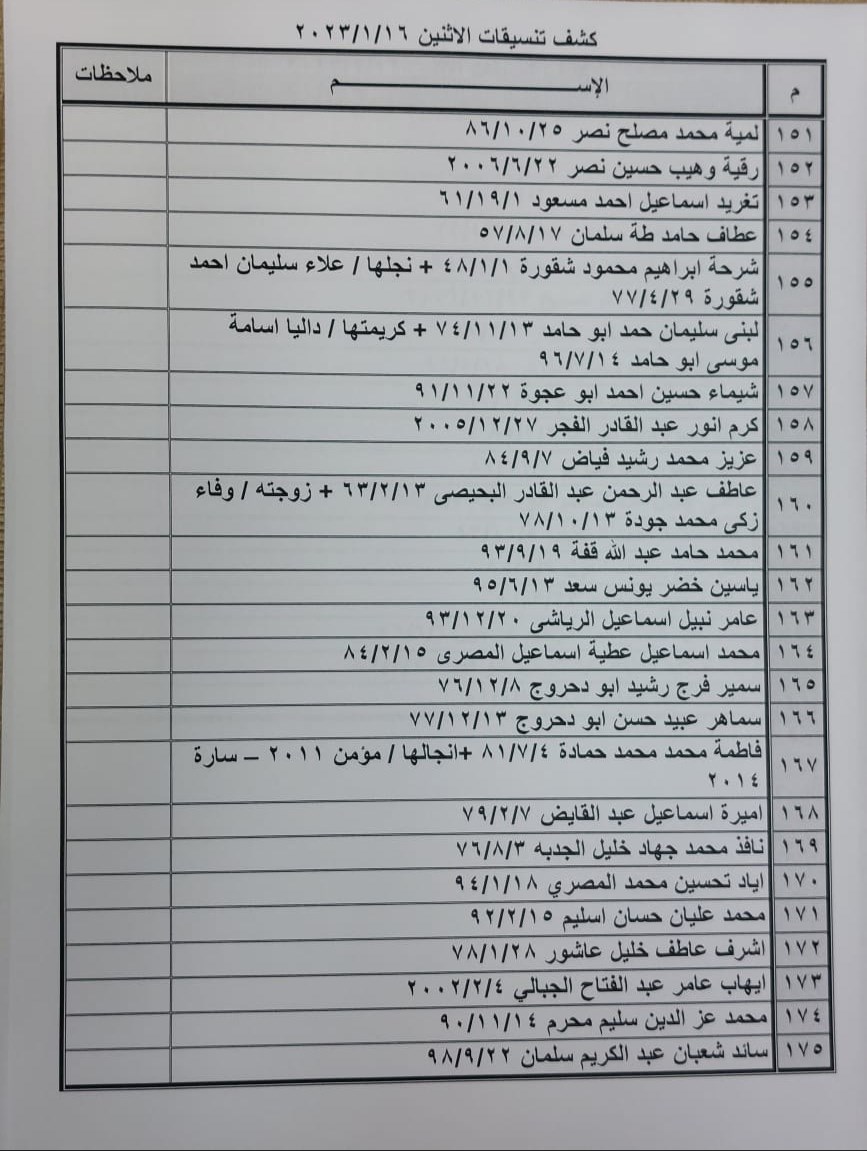 كشف تنسيقات الاثنين ٢٠٢٣/١/١٦
م الإســـــــــــــــــــــــــــــــــــــم ملاحظات
١٥١ لمية محمد مصلح نصر ٨٦/١٠/٢٥
١٥٢ رقية وهيب حسين نصر ٢٠٠٦/٦/٢٢
١٥٣ تغريد اسماعيل احمد مسعود ٦١/١٩/١
١٥٤ عطاف حامد طة سلمان ٥٧/٨/١٧
١٥٥ شرحة ابراهيم محمود شقورة ٤٨/١/١ + نجلها / علاء سليمان احمد
شقورة ٧٧/٤/٢٩
١٥٦ لبنى سليمان حمد ابو حامد ٧٤/١١/١٣ + كريمتها / داليا اسامة
موسى ابو حامد ٩٦/٧/١٤
١٥٧ شيماء حسين احمد ابو عجوة ٩١/١١/٢٢
١٥٨ كرم انور عبد القادر الفجر ٢٠٠٥/١٢/٢٧
١٥٩ عزيز محمد رشيد فياض ٨٤/٩/٧
١٦٠ عاطف عبد الرحمن عبد القادر البحيصى ٦٣/٢/١٣ + زوجته / وفاء
زكى محمد جودة ٧٨/١٠/١٣
١٦١ محمد حامد عبد الله قفة ٩٣/٩/١٩
١٦٢ ياسين خضر يونس سعد ٩٥/٦/١٣
١٦٣ عامر نبيل اسماعيل الرياشى ٩٣/١٢/٢٠
١٦٤ محمد اسماعيل عطية اسماعيل المصرى ٨٤/٢/١٥
١٦٥ سمير فرج رشيد ابو دحروج ٧٦/١٢/٨
١٦٦ سماهر عبيد حسن ابو دحروج ٧٧/١٢/١٣
١٦٧ فاطمة محمد محمد حمادة ٨١/٧/٤ +انجالها / مؤمن ٢٠١١ – سارة
٢٠١٤
١٦٨ اميرة اسماعيل عبد القايض ٧٩/٢/٧
١٦٩ نافذ محمد جهاد خليل الجدبه ٧٦/٨/٣
١٧٠ اياد تحسين محمد المصري ٩٤/١/١٨
١٧١ محمد عليان حسان اسليم ٩٢/٢/١٥
١٧٢ اشرف عاطف خليل عاشور ٧٨/١/٢٨
١٧٣ ايهاب عامر عبد الفتاح الجبالي ٢٠٠٢/٢/٤
١٧٤ محمد عز الدين سليم محرم ٩٠/١١/١٤
١٧٥ سائد شعبان عبد الكريم سلمان ٩٨/٩/٢٢